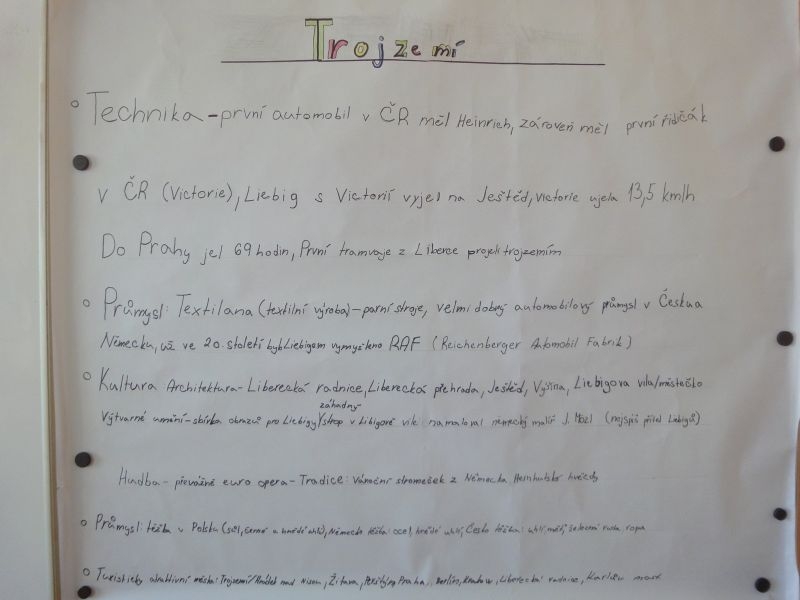 Trojzemí
Technika - první automobil v ČR měl Heinrich, zároveň měl první řidičák
v ČR (Victorie), Liebig s Victorií vyjel na Ještěd, Victorie ujela 13,5 km/h
Do Prahy jel 69 hodin, První tramvaje z Liberce projeli trojzemím
Průmysl: Textilana (textilní výroba) - parní stroje, velmi dobrý automobilový průmysl v Česku a
Německu, už ve 20. století byl Liebigem vymyšleno RAF (Reichenberger Automobil Fabrik)
Kultura Architektura - Liberecká radnice, Liberecká přehrada, Ještěd, Vyšina, Liebigova vila/městečko
záhadný
Výtvarné umění - sbírka obrazů pro Liebigy/strop v Libigově vile namaloval německý malíř J. (nejspíš přítel Liebigů)
Hudba - převážně euro opera - Tradice: Vánoční stromeček z Německa hvězdy
Průmysl: těžba v Polsku (sůl, černé a hnědé uhlí), Německo těžba: ocel, hnědé uhlí, Česko těžba: uhlí, měď, železná ruda, ropa
Turisticky atraktivní města: Trojzemí/Hrádek nad Nisou, Žitava, Praha, Berlín, Krakow, Liberecká radnice, Karlův most